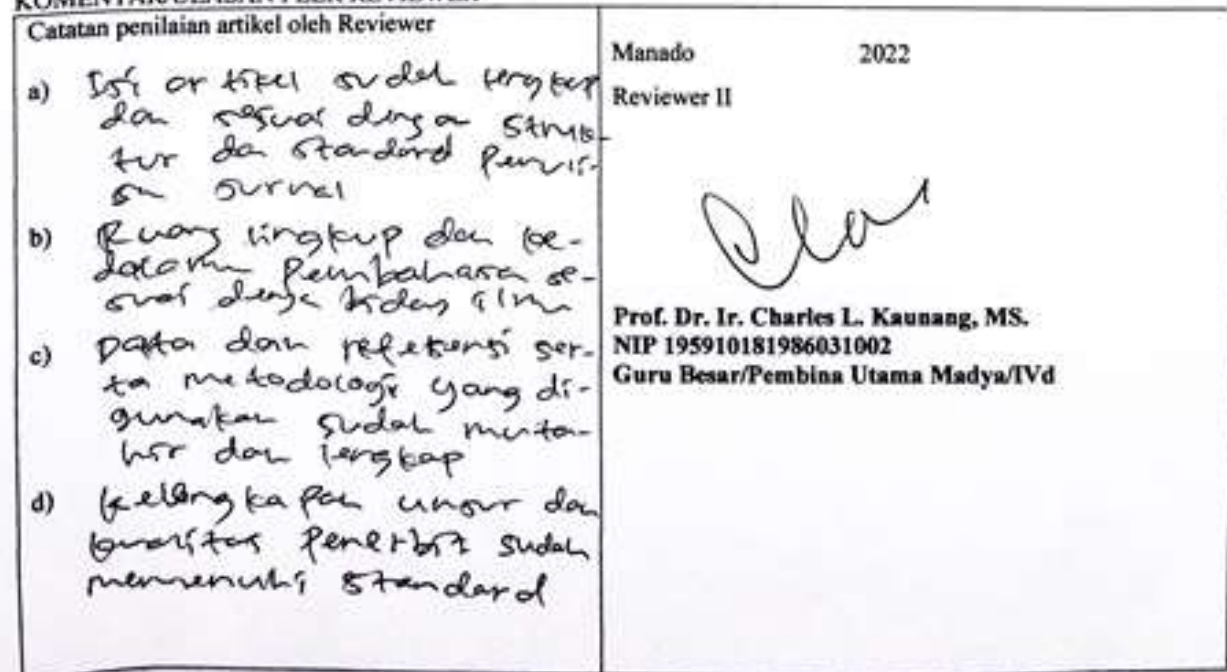 Catatan penilaian artikel oleh Reviewer
a) Isi artikel sudah lengkap
dan sesuai dengan struk-
tur dan standard penulis-
an jurnal
b) Ruang lingkup dan ke-
dalaman pembahasan se-
suai dengan bidang ilmu
c) Data dan referensi ser-
ta metodologi yang di-
gunakan sudah muta-
hir dan lengkap
d) Kelengkapan unsur dan
kualitas penerbit sudah
memenuhi standard
Manado 2022
Reviewer II
Prof. Dr. Ir. Charles L. Kaunang, MS.
NIP 195910181986031002
Guru Besar/Pembina Utama Madya/IVd